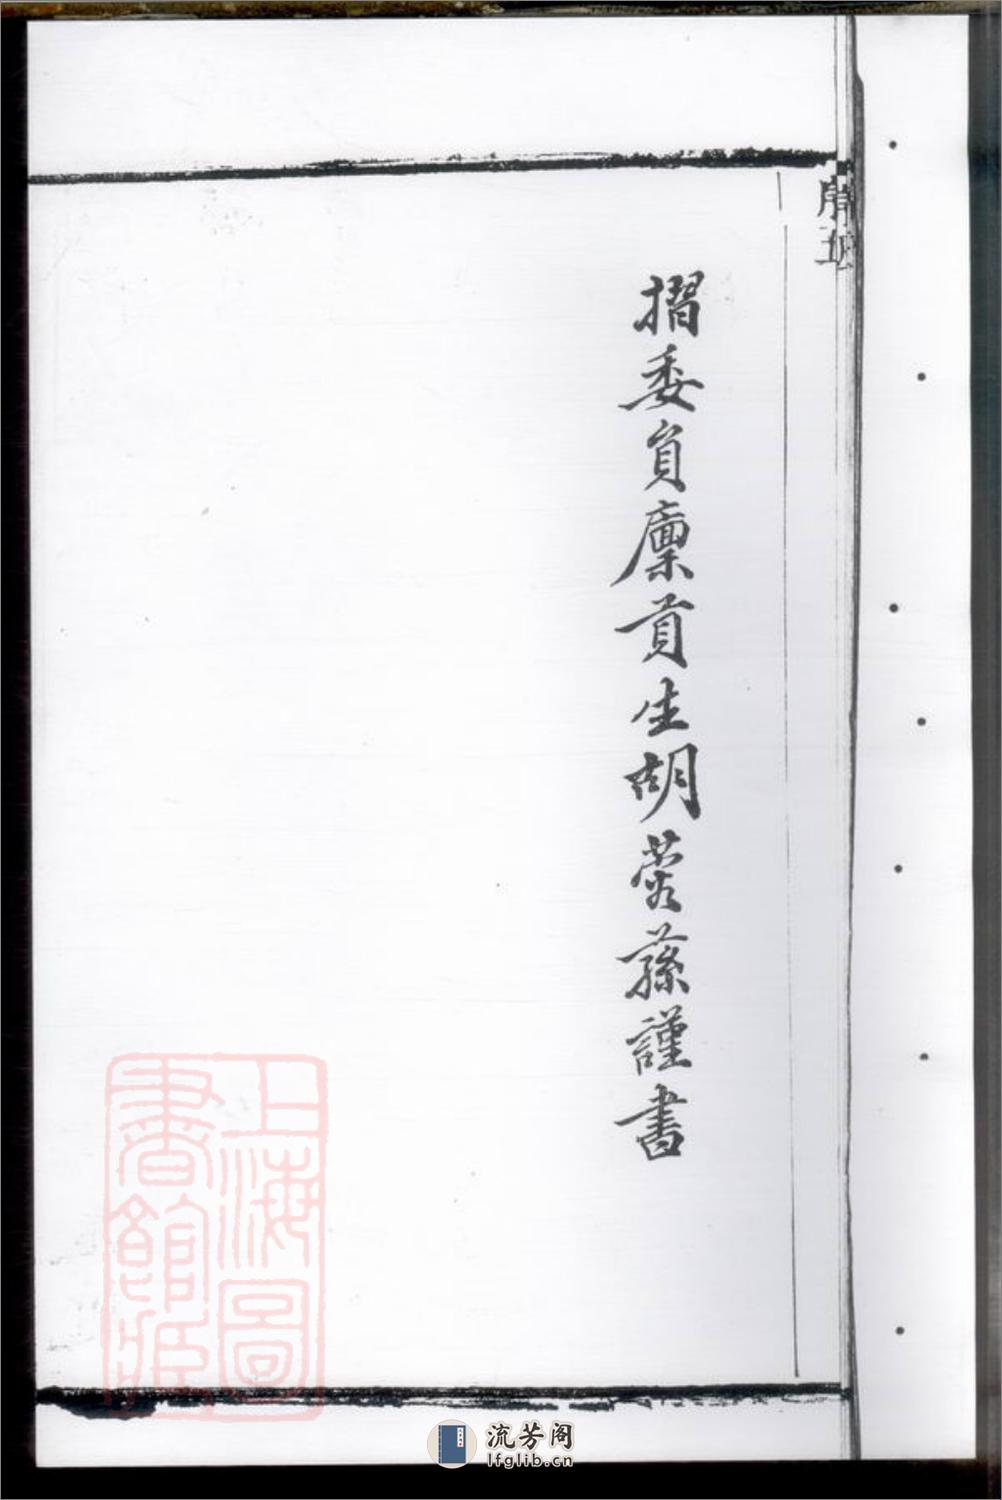 序五
摺委員廩貢生胡蓉蓀謹書
上海圖
書館藏
流芳阁
lfglib.cn